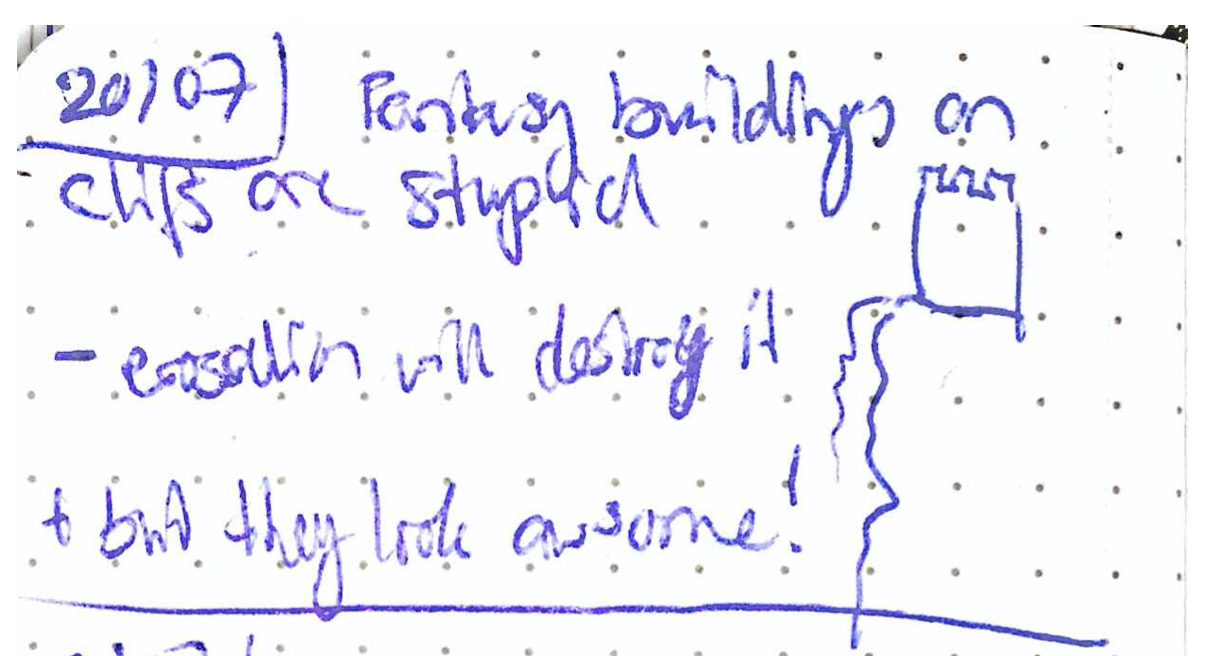 20/07 Fantasy buildings on
clifs are stupid
- erosation will destroy it
+ but they look awsome!